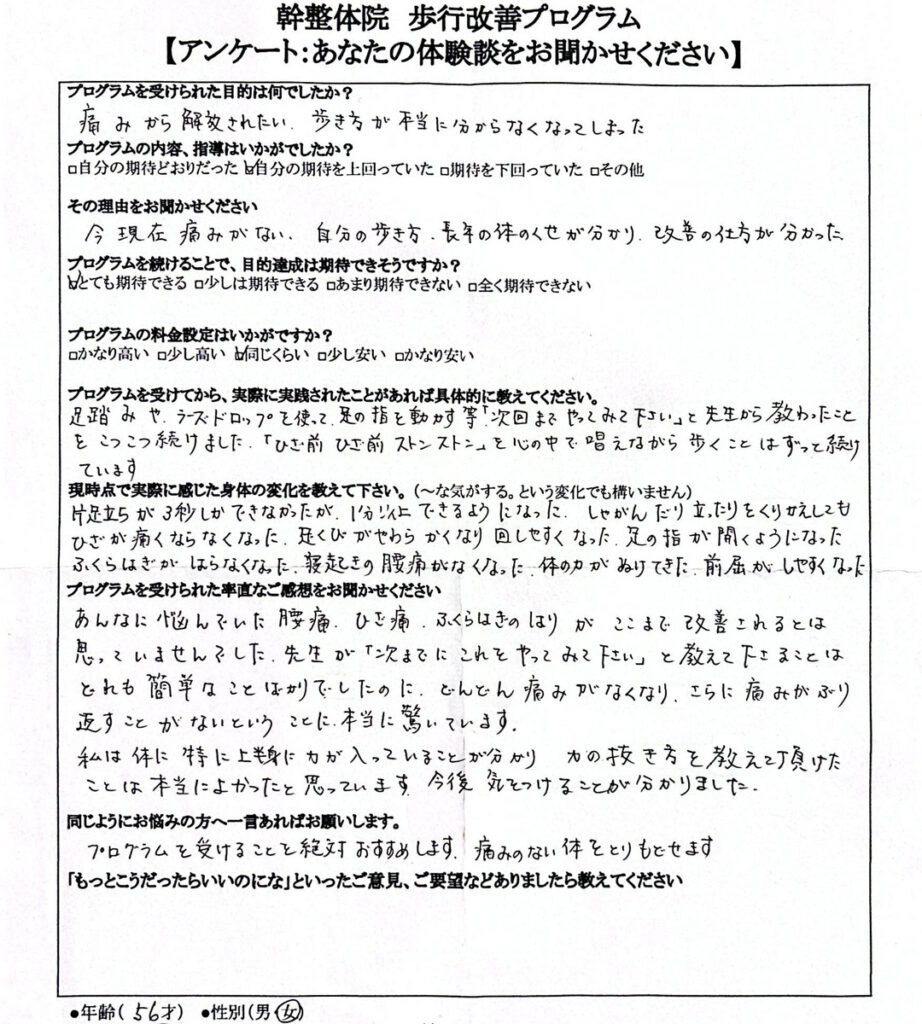 幹整体院 歩行改善プログラム
【アンケート：あなたの体験談をお聞かせください】
プログラムを受けられた目的は何でしたか？
痛みから解放されたい、歩き方が本当に分からなくなってしまった
プログラムの内容、指導はいかがでしたか？
□自分の期待どおりだった ☑自分の期待を上回っていた □期待を下回っていた □その他
その理由をお聞かせください
今現在痛みがない、自分の歩き方、長年の体のくせが分かり、改善の仕方が分かった
プログラムを続けることで、目的達成は期待できそうですか？
☑とても期待できる □少しは期待できる □あまり期待できない □全く期待できない
プログラムの料金設定はいかがですか？
□かなり高い □少し高い ☑同じくらい □少し安い □かなり安い
プログラムを受けてから、実際に実践されたことがあれば具体的に教えてください。
足踏みや、ラーズ・ドロップを使って足の指を動かす等「次回までやってみて下さい」と先生から教わったこと
をこつこつ続けました、「ひざ前 ひざ前 ストンストン」を心の中で唱えながら歩くことはずっと続け
ています
現時点で実際に感じた身体の変化を教えて下さい。（～な気がする。という変化でも構いません）
片足立ちが3秒しかできなかったが、1分以上できるようになった、しゃがんだり立ったりをくりかえしても
ひざが痛くならなくなった、足くびがやわらかくなり回しやすくなった、足の指が開くようになった
ふくらはぎがはらなくなった、寝起きの腰痛がなくなった、体の力がぬけてきた、前屈がしやすくなった
プログラムを受けられた率直なご感想をお聞かせください
あんなに悩んでいた腰痛、ひざ痛、ふくらはぎのはりがここまで改善されるとは
思っていませんでした、先生が「次までにこれをやってみて下さい」と教えて下さることは
どれも簡単なことばかりでしたのに、どんどん痛みがなくなり、さらに痛みがぶり
返すことがないということに、本当に驚いています。
私は体に特に上半身に力が入っていることが分かり 力の抜き方を教えて頂けた
ことは本当によかったと思っています、今後気をつけることが分かりました。
同じようにお悩みの方へ一言あればお願いします。
プログラムを受けることを絶対おすすめします、痛みのない体をとりもどせます
「もっとこうだったらいいのにな」といったご意見、ご要望などありましたら教えてください
●年齢（56才） ●性別（男・女）